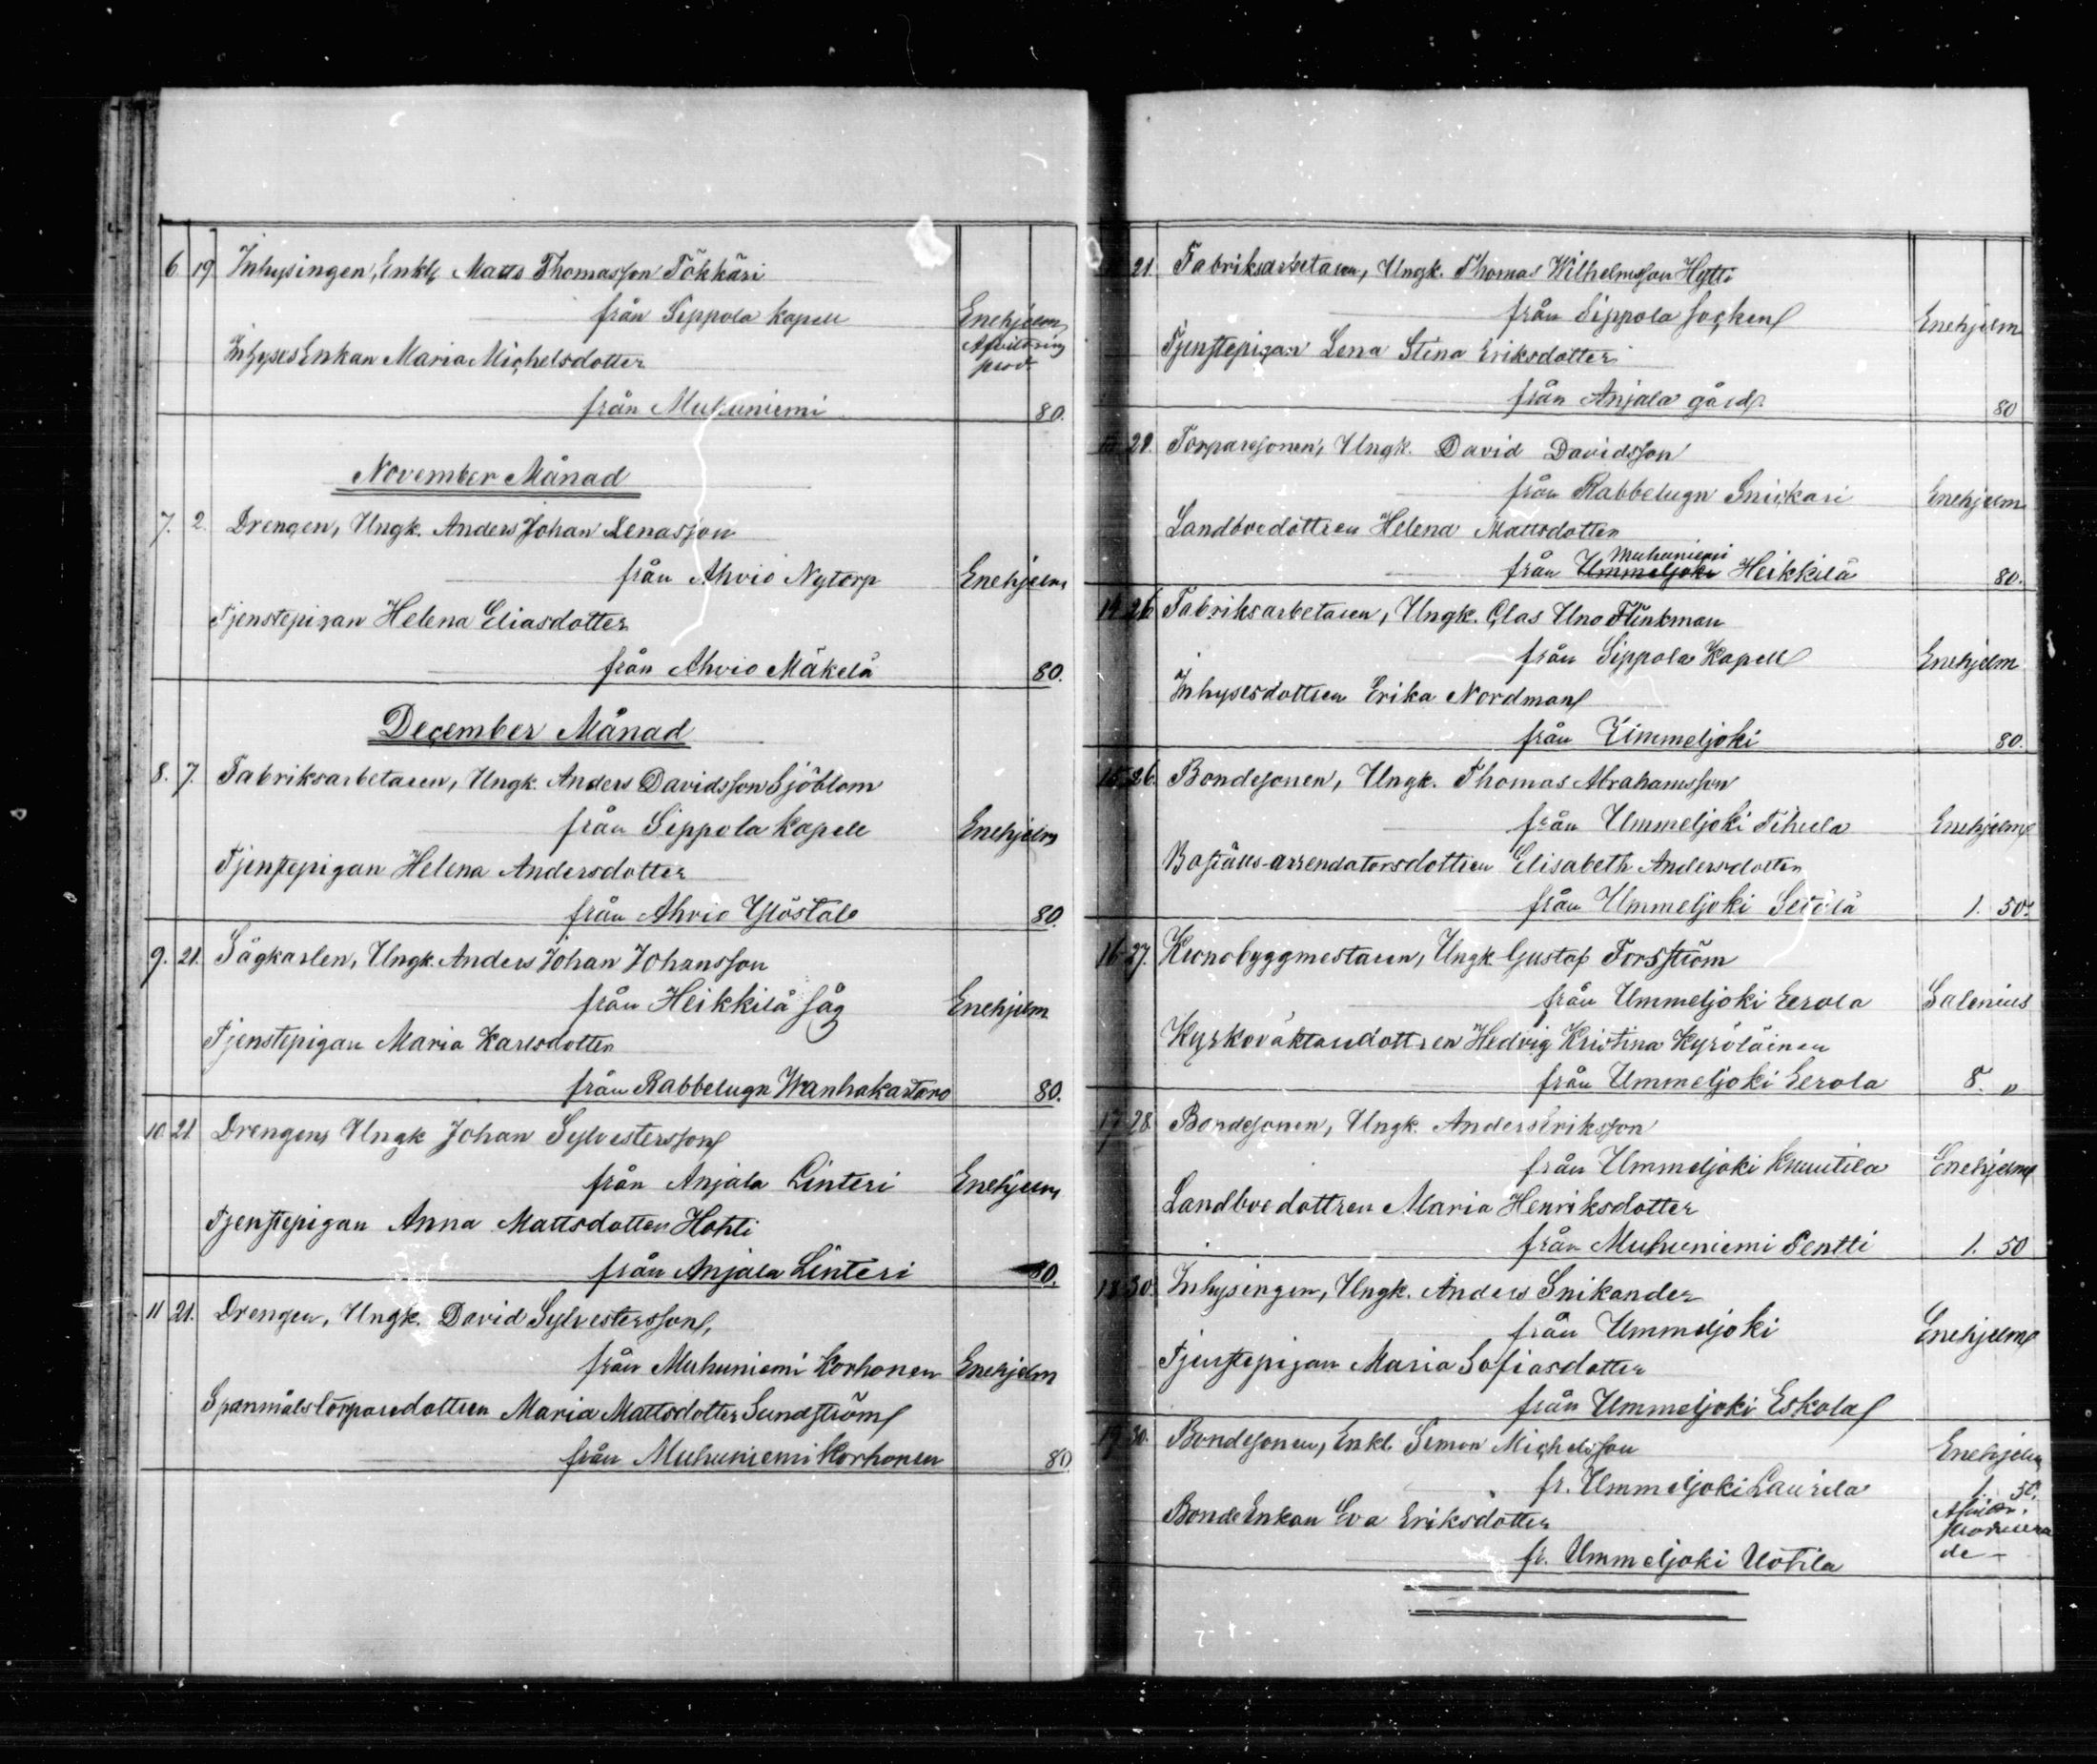 6. 19. Inhysingen, Enkl. Matts Thomasson Tökkäri
från Sippola kapell Enehjelm
Afvittring
InhysesEnkan Maria Michelsdotter prod.
från Muhuniemi 80.
November Månad
7. 2. Drengen, Ungk. Anders Johan Lenasson
från Ahvio Nytorp Enehjelm
Tjenstepigan Helena Eliasdotter
från Ahvio Mäkelä 80.
December Månad
8. 7. Fabriksarbetaren, Ungk. Anders Davidsson Sjöblom
från Sippola kapell Enehjelm
Tjenstepigan Helena Andersdotter
från Ahvio Ylöstalo 80.
9. 21. Sågkarlen, Ungk. Anders Johan Johansson
från Heikkilä såg Enehjelm
Tjenstepigan Maria Karlsdotter
från Rabbelugn Wanhakartano 80.
10. 21. Drengen, Ungk Johan Sylvestersson
från Anjala Linteri Enehjelm
Tjenstepigan Anna Mattsdotter Hohti
från Anjala Linteri 80.
11 21. Drengen, Ungk. David Sylvestersson,
från Muhuniemi Korhonen Enehjelm
Spanmålstorparedottren Maria Mattsdotter Sundström
från Muhuniemi Korhonen 80.
21. Fabriksarbetaren, Ungk. Thomas Wilhelmsson Hytti
från Sippola socken Enehjelm
Tjenstepigan Lena Stina Eriksdotter
från Anjala gård. 80
21. Torparesonen, Ungk. David Davidsson
från Rabbelugn Snickari Enehjelm
Landboedottren Helena Mattsdotter
Muhuniemi
från Ummeljoki Heikkilä 80.
14 26. Fabriksarbetaren, Ungk. Clas Uno Flinkman
från Sippola Kapell Enehjelm
Inhysesdottren Erika Nordman
från Ummeljoki 80.
15 26. Bondesonen, Ungk. Thomas Abrahamsson
från Ummeljoki Tihula Enehjelm
Boställs-arrendatorsdottren Elisabeth Andersdotter
från Ummeljoki Seiölä 1. 50.
16 27. Kronobyggmestaren, Ungk Gustaf Forsström
från Ummeljoki Eerola Salenius
Kyrkovaktaredottren Hedvig Kristina Kyröläinen
från Ummeljoki Eerola 8. "
17 28. Bondesonen, Ungk. Anders Eriksson
från Ummeljoki Knuutila Enehjelm
Landboedottren Maria Henriksdotter
från Muhuniemi Pentti 1. 50
18 30. Inhysingen, Ungk. Anders Snikander
från Ummeljoki Enehjelm
Tjenstepigan Maria Sofiasdotter
från Ummeljoki Eskola
19 30. Bondesonen, Enkl. Simon Michelsson Enehjelm
fr. Ummeljoki Laurila 1. 50.
BondeEnkan Eva Eriksdotter
fr. Ummeljoki Uotila